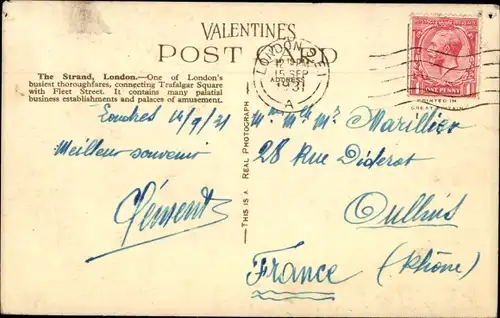 VALENTINES
POST CARD
LONDON
12 15 PM
15 SEP
1931
A
ADDRESS
ONE PENNY
PRINTED IN
GREAT BRITAIN
The Strand, London.—One of London's
busiest thoroughfares, connecting Trafalgar Square
with Fleet Street. It contains many palatial
business establishments and palaces of amusement.
THIS IS A REAL PHOTOGRAPH
Londres 14/9/31
Meilleur souvenir
Clément
Mr Mme Mr Marillier
28 Rue Diderot
Oullins
France (Rhône)